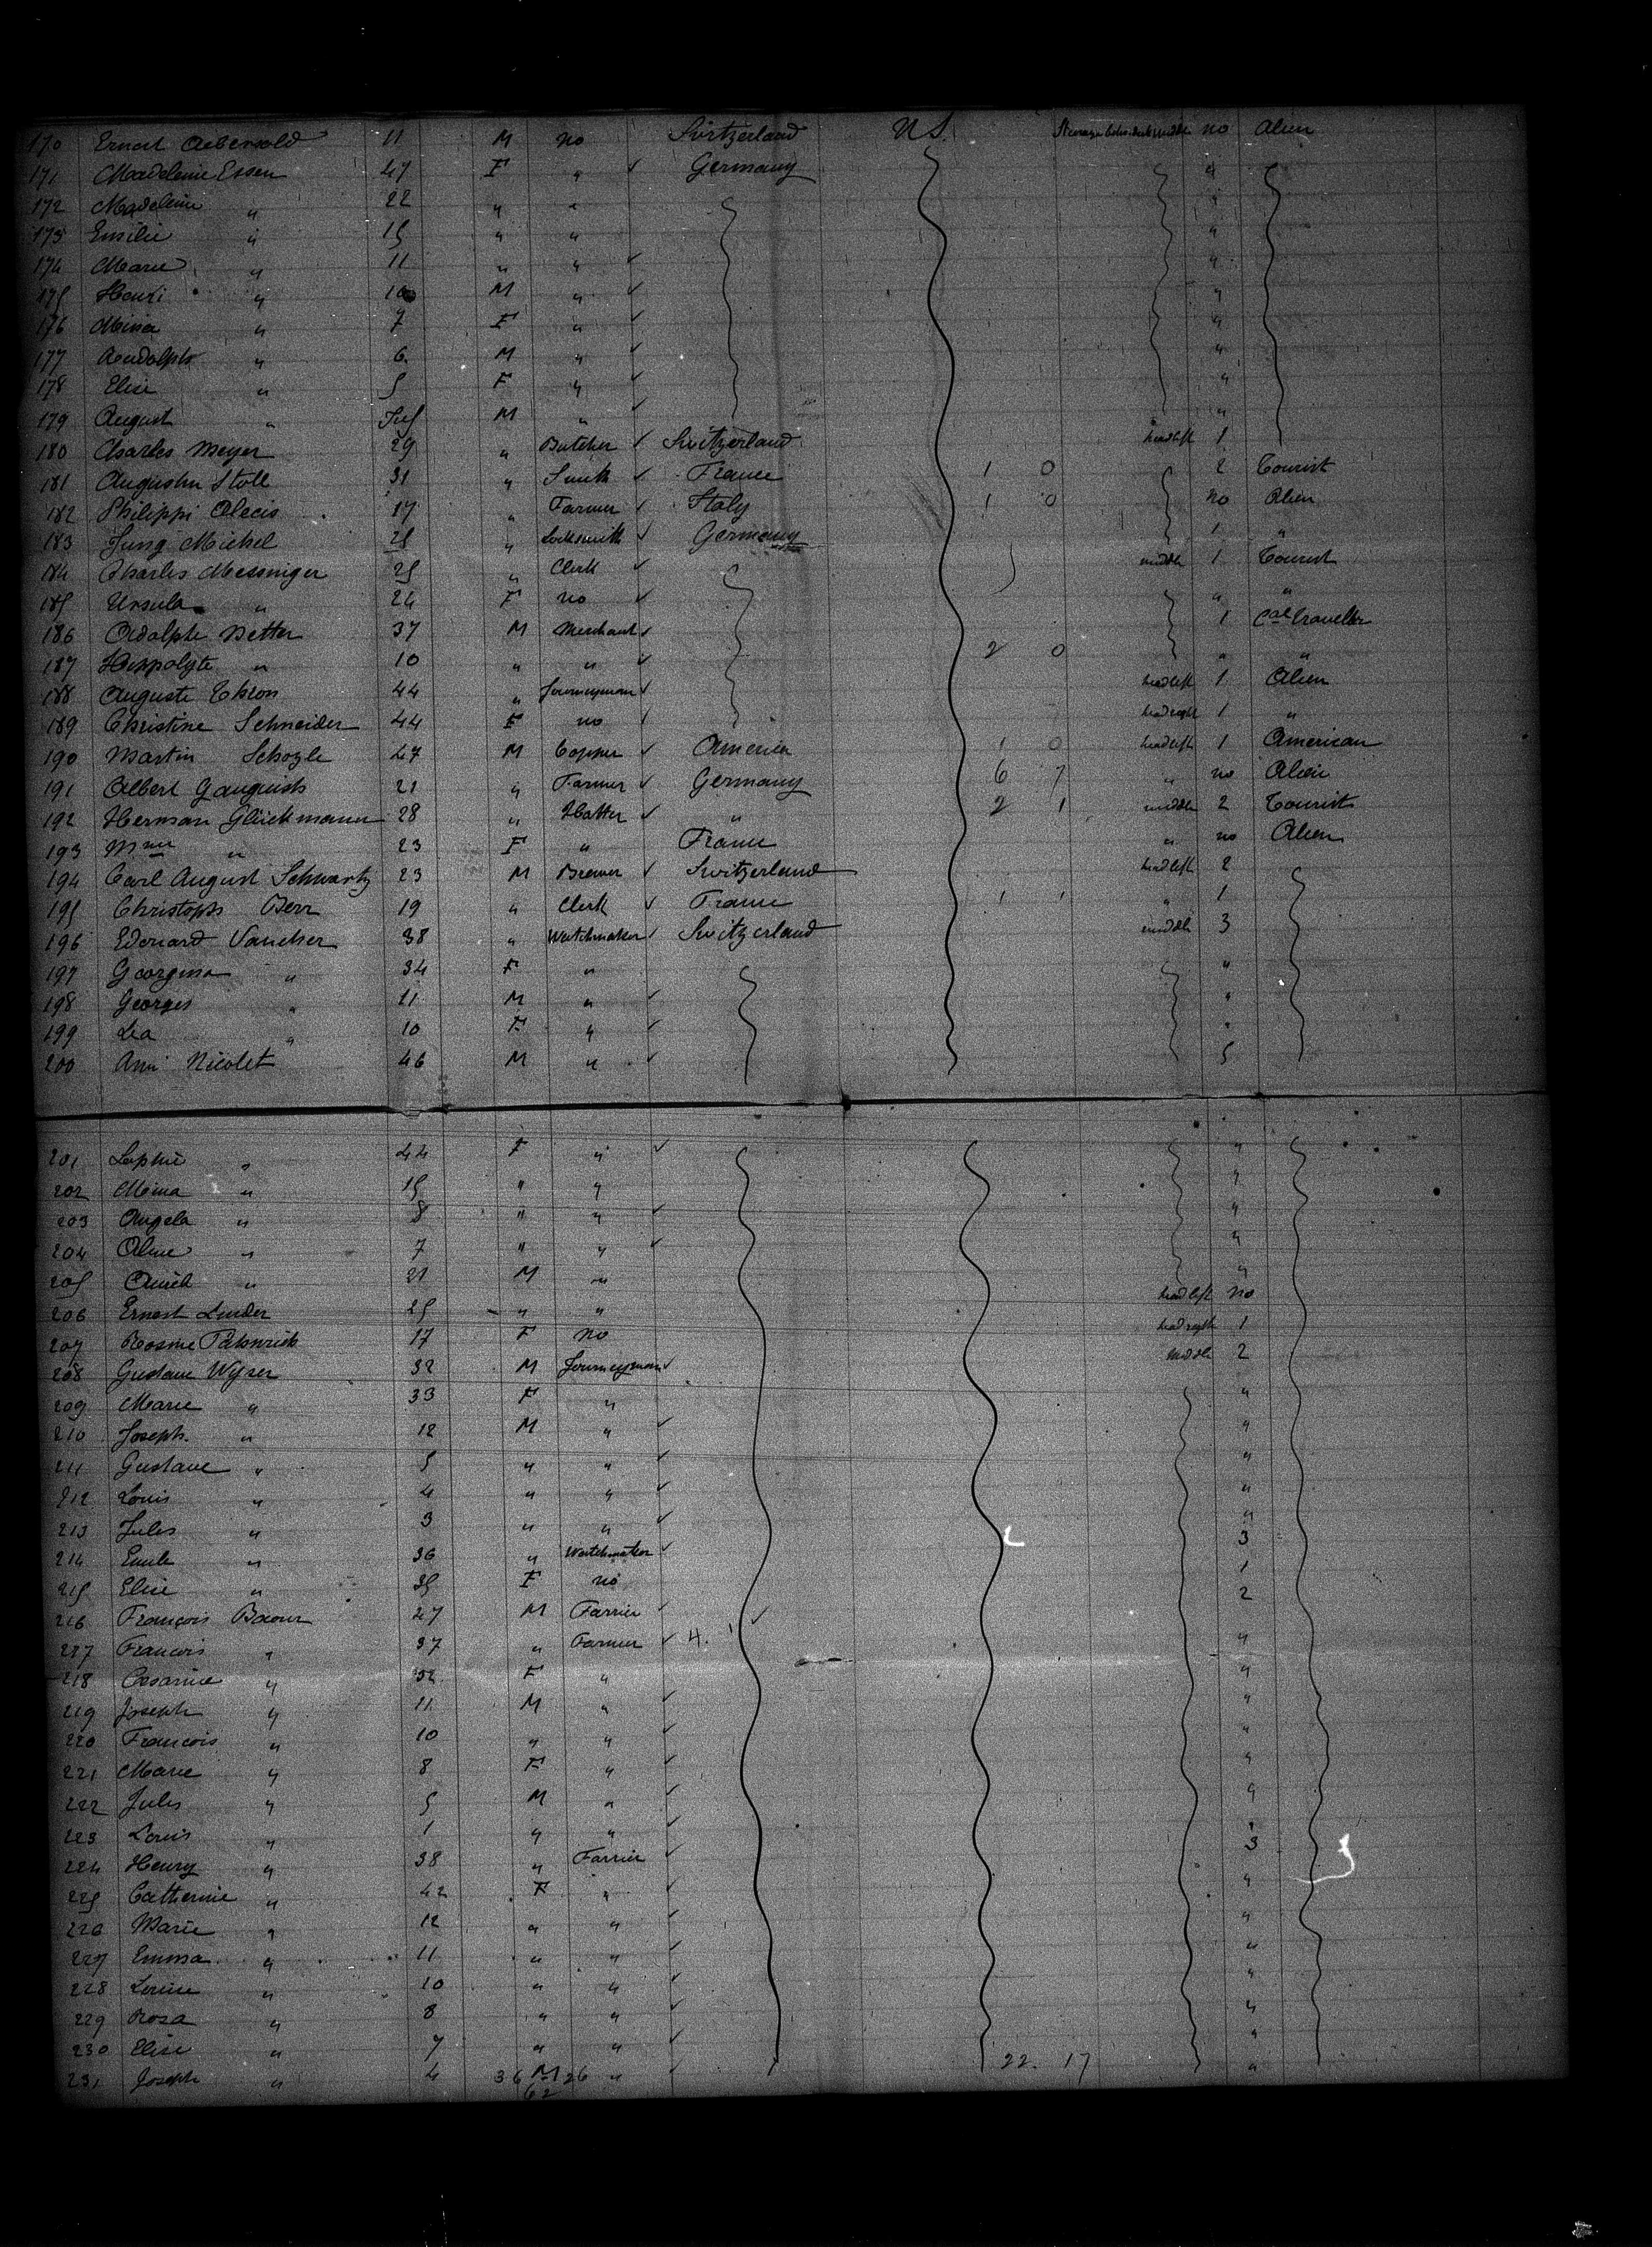 170 Ernest Aebersold 11 M no Switzerland U S. Steerage middle no Alien
171 Madeleine Essen 47 F " ✓ Germany "
172 Madeleine " 22 " " "
173 Emilie " 15 " " "
174 Marie " 11 " " ✓ "
175 Henri " 10 M " ✓ "
176 Mina " 7 F " ✓ "
177 " 6 M " ✓ "
178 Elise " 5 F " ✓ "
179 August " Inf M " ✓ "
180 Charles Meyer 29 " Butcher ✓ Switzerland head left 1
181 Augustin Stoll 31 " Smith ✓ France 1 0 2 Tourist
182 Philippi Alecis 17 " Farmer ✓ Italy 1 0 no Alien
183 Jung Michel 25 " Locksmith ✓ Germany 1 "
184 Charles Messniger 25 " Clerk ✓ middle 1 Tourist
185 Ursula " 24 F no ✓ " "
186 Adolphe Netter 37 M Merchant ✓ 1 Cial traveller
187 Hippolyte " 10 " " ✓ 2 0 " "
188 Auguste 44 " Journeyman ✓ head left 1 Alien
189 Christine Schneider 44 F no ✓ head right 1 "
190 Martin 47 M ✓ America 1 0 head left 1 American
191 Albert 21 " Farmer ✓ Germany 6 7 " no Alien
192 Herman Glückmann 28 " Hatter ✓ " 2 1 middle 2 Tourist
193 Mme " 23 F " France " no Alien
194 Carl August Schwartz 23 M Brewer ✓ Switzerland head left 2
195 Christoph Derr 19 " Clerk ✓ France 1 1 " 1
196 Edouard Vaucher 38 " Watchmaker ✓ Switzerland middle 3
197 Georgina " 34 F " "
198 Georges " 11 M " ✓ "
199 Lea " 10 F " ✓ "
200 Ami Nicolet 46 M " ✓ 5
201 " 44 F " ✓ "
202 Mina " 15 " " "
203 Angela " 8 " " ✓ "
204 Aline " 7 " " ✓ "
205 " 21 M " "
206 Ernest Linder 25 " " head left no
207 Rosine 17 F no head right 1
208 Gustave Wyser 32 M Journeyman ✓ middle 2
209 Marie " 33 F " "
210 Joseph " 12 M " ✓ "
211 Gustave " 5 " " ✓ "
212 Louis " 4 " " ✓ "
213 Jules " 3 " " ✓ "
214 Emile " 36 " Watchmaker ✓ 3
215 Elise " 35 F no 1
216 François 27 M Farrier ✓ ✓ 2
217 Francois " 37 " Farmer ✓ 4. "
218 Cesarine " 32 F " "
219 Joseph " 11 M " ✓ "
220 Francois " 10 " " ✓ "
221 Marie " 8 F " ✓ "
222 Jules " 5 M " ✓ "
223 Louis " 1 " " ✓ "
224 Henry " 38 " Farrier ✓ 3
225 Catherine " 42 F " ✓ "
226 Marie " 12 " " ✓ "
227 Emma " 11 " " ✓ "
228 Louise " 10 " " ✓ "
229 Rosa " 8 " " ✓ "
230 Elise " 7 " " ✓ "
231 Joseph " 4 36 M 26 " ✓ 22. 17 "
62